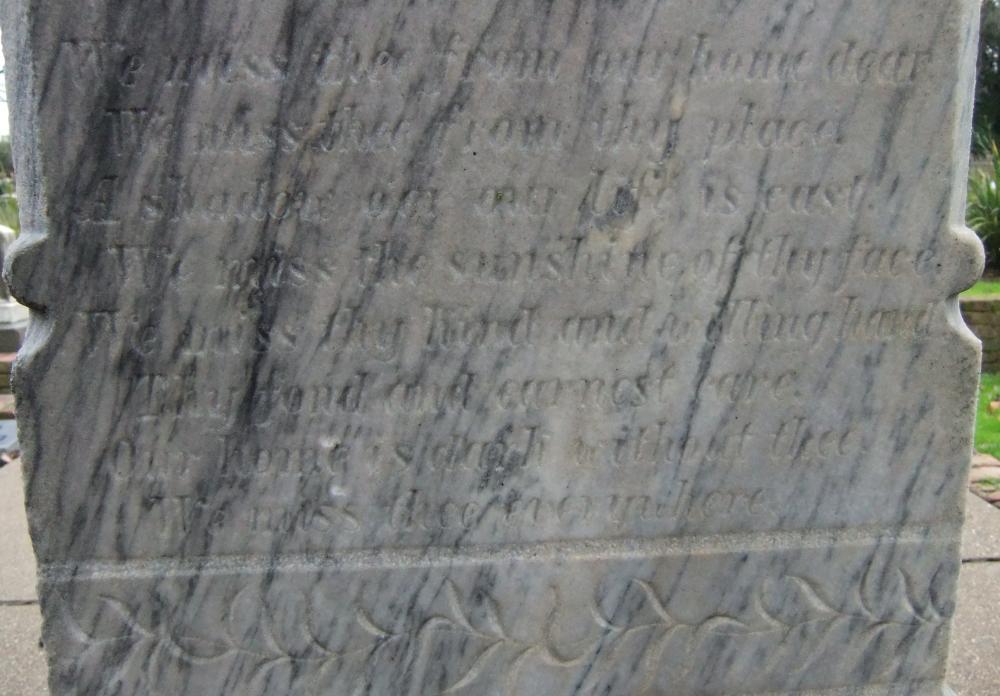 We miss thee from our home dear
We miss thee from thy place
A shadow o'er our life is cast.
We miss the sunshine of thy face.
We miss thy kind and willing hand
Thy fond and earnest care.
Our home is dark without thee
We miss thee everywhere.